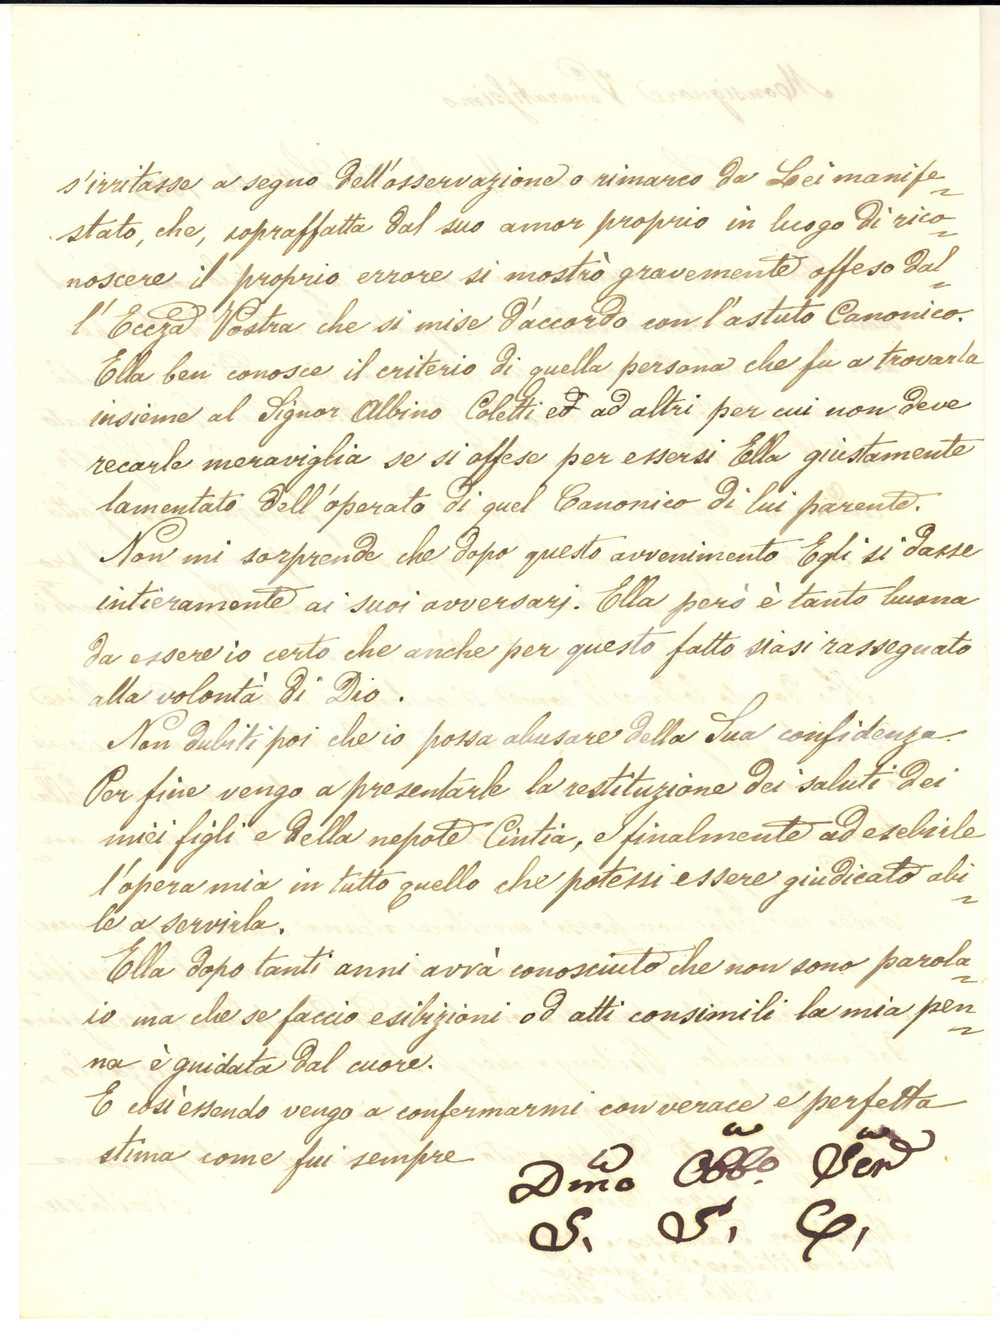 s'irritasse a segno dell'osservazione o rimarco da Lei manife=
stato, che, sopraffatta dal suo amor proprio in luogo di rico=
noscere il proprio errore si mostrò gravemente offeso dal=
l'Eccza Vostra che si mise d'accordo con l'astuto Canonico.
Ella ben conosce il criterio di quella persona che fu a trovarla
insieme al Signor Albino Coletti ed ad altri per cui non deve
recarle meraviglia se si offese per essersi Ella giustamente
lamentato dell'operato di quel Canonico di lui parente.
Non mi sorprende che dopo questo avvenimento Egli si dasse
intieramente ai suoi avversarj. Ella però è tanto buona
da essere io certo che anche per questo fatto siasi rassegnato
alla volontà di Dio.
Non dubiti poi che io possa abusare della Sua confidenza.
Per fine vengo a presentarle la restituzione dei saluti dei
miei figli e della nepote Cintia, e finalmente ad esebirle
l'opera mia in tutto quello che potessi essere giudicato abi=
le a servirla.
Ella dopo tanti anni avrà conosciuto che non sono parola=
io ma che se faccio esibizioni od atti consimili la mia pen=
na è guidata dal cuore.
E così essendo vengo a confermarmi con verace e perfetta
stima come fui sempre
Dmo Obbo. Ser
S. S.